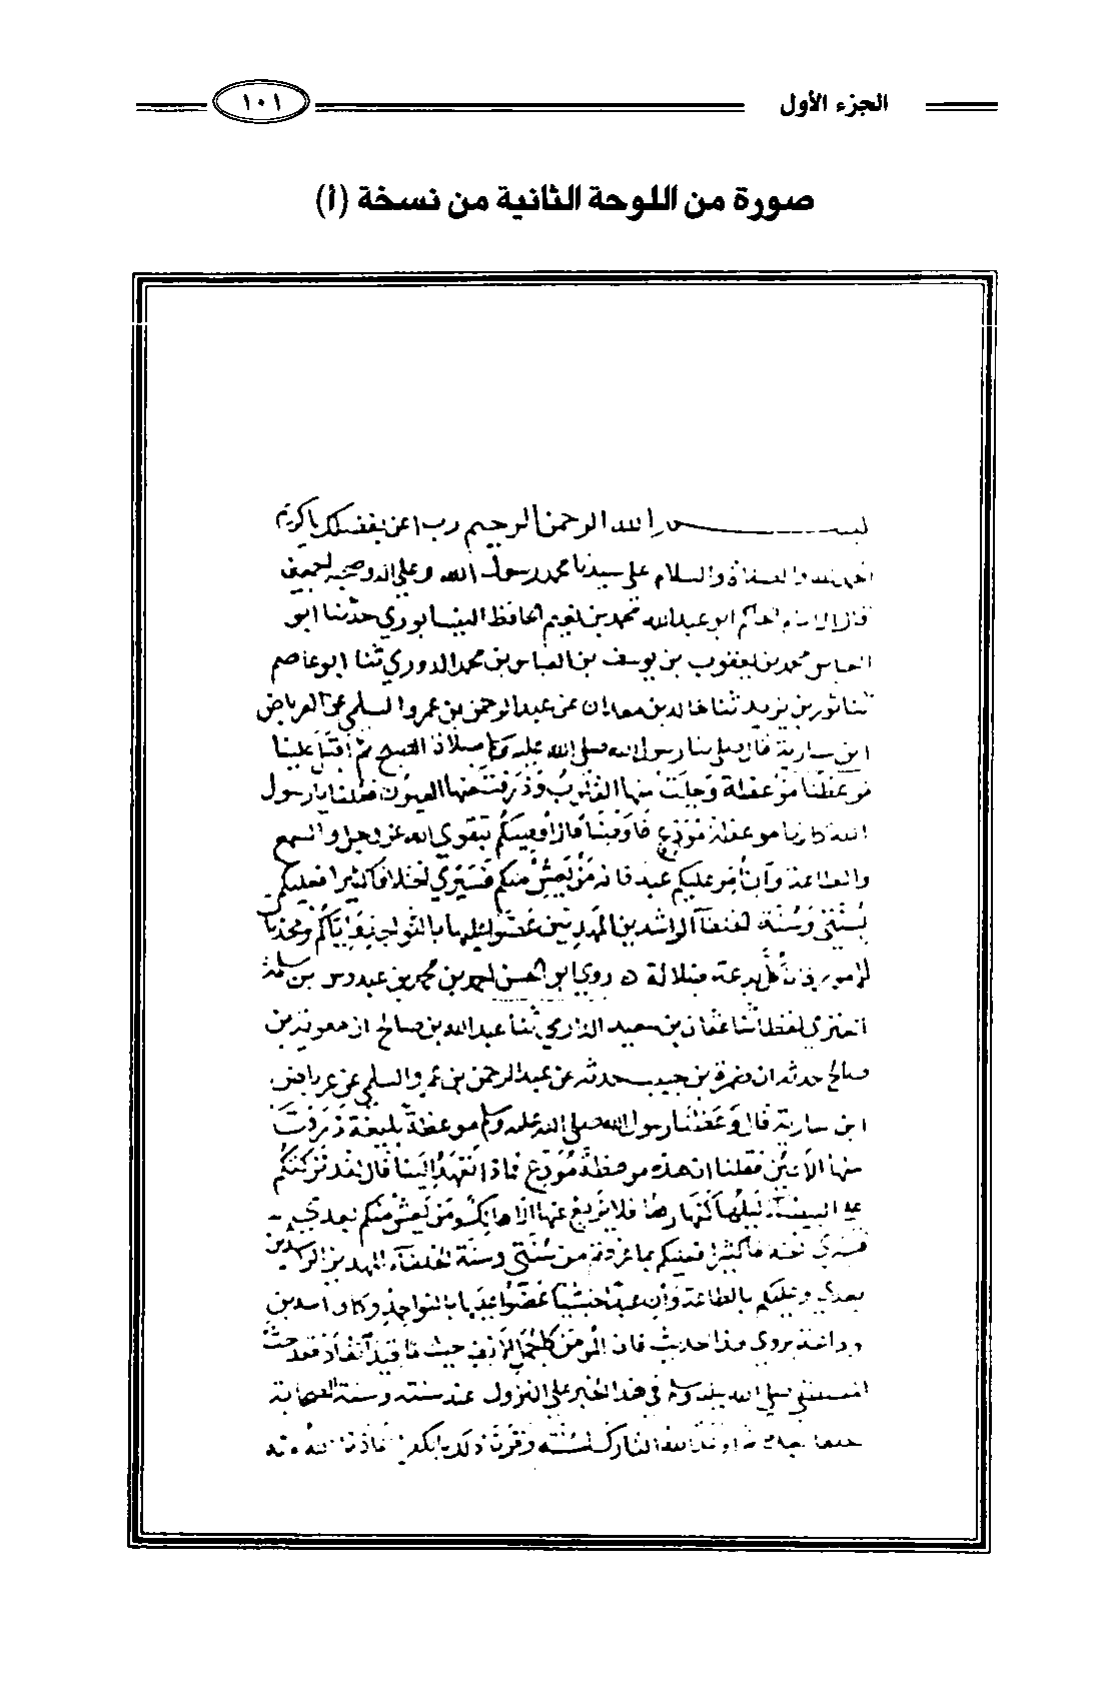 الجزء الأول
١٠١
صورة من اللوحة الثانية من نسخة (أ)
بسم الله الرحمن الرحيم رب اعن بفضلك يا كريم
الحمد لله والصلاة والسلام على سيدنا محمد رسول الله وعلى اله وصحبه اجمعين
قال الامام الحاكم ابو عبدالله محمد بن نعيم الحافظ النيسابوري حدثنا ابو
العباس محمد بن يعقوب بن يوسف بن العباس بن محمد الدوري ثنا ابو عاصم
ثنا ثور بن يزيد ثنا خالد بن معدان عن عبد الرحمن بن عمرو السلمي عن العرباض
ابن سارية قال صلى بنا رسول الله صلى الله عليه وسلم صلاة الصبح ثم اقبل علينا
فوعظنا موعظة وجلت منها القلوب وذرفت منها العيون فقلنا يا رسول
الله كانها موعظة مودع فاوصنا قال أوصيكم بتقوى الله عز وجل والسمع
والطاعة وان أمر عليكم عبد فانه من يعش منكم فسيرى اختلافا كثيرا فعليكم
بسنتي وسنة الخلفآ الراشدين المهديين عضوا عليها بالنواجذ وإياكم ومحدثات
الامور فان كل بدعة ضلالة ه روى ابو الحسن احمد بن محمد بن عبدوس بن سلمة
العنزي لفظا ثنا عثمان بن سعيد الدارمي ثنا عبدالله بن صالح ان معوية بن
صالح حدثه ان ضمرة بن حبيب حدثه عن عبد الرحمن بن عمرو السلمي عن عرباض
ابن سارية قال وعظنا رسول الله صلى الله عليه وسلم موعظة بليغة ذرفت
منها الأعين فقلنا ان هذه موعظة مودع فماذا تعهد إلينا قال لقد تركتكم
على البيضآء ليلها كنهارها فلا يزيغ عنها الا هالك ومن يعش منكم بعدي
فسيرى اختلافا كثيرا فعليكم بما عرفتم من سنتي وسنة الخلفآء المهديين الراشدين
بعدي وعليكم بالطاعة وان عبدا حبشيا عضوا عليها بالنواجذ وكان اسد بن
وداعة يروي هذا الحديث فان المؤمن كالجمل الأنف حيث ما قيد آنقاد فقد حث
المصطفى صلى الله عليه وسلم في هذا الخبر على النزول عند سنته وسنة الصحابة